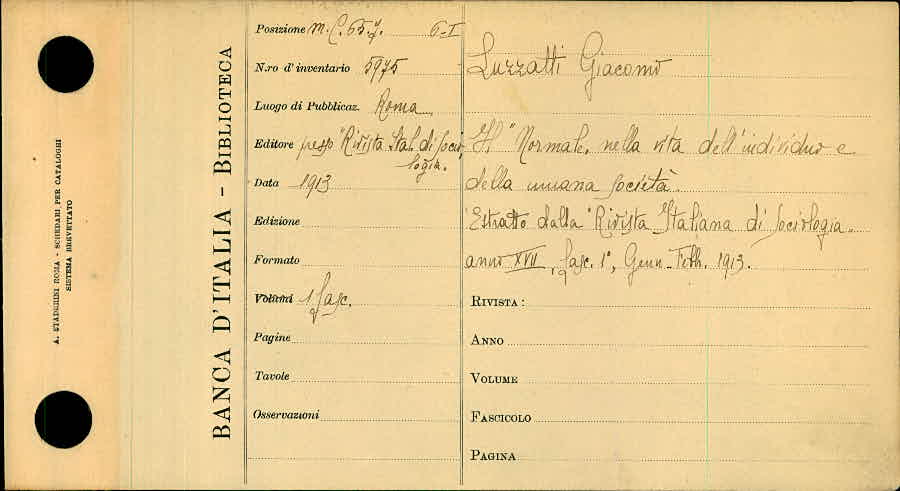 A. STADERINI ROMA - SCHEDARI PER CATALOGHI
SISTEMA BREVETTATO
BANCA D'ITALIA - BIBLIOTECA
Posizione m. C. 6-I
N.ro d'inventario 5975
Luogo di Pubblicaz. Roma
Editore presso "Rivista Ital. di Socio
logia.
Data 1913
Edizione
Formato
Volumi 1 fasc.
Pagine
Tavole
Osservazioni
Luzzatti Giacomo
Il "Normale" nella vita dell'individuo e
della umana società.
Estratto dalla "Rivista Italiana di Sociologia"
anno XVII, fasc. 1°, Genn-Febb. 1913.
RIVISTA:
ANNO
VOLUME
FASCICOLO
PAGINA